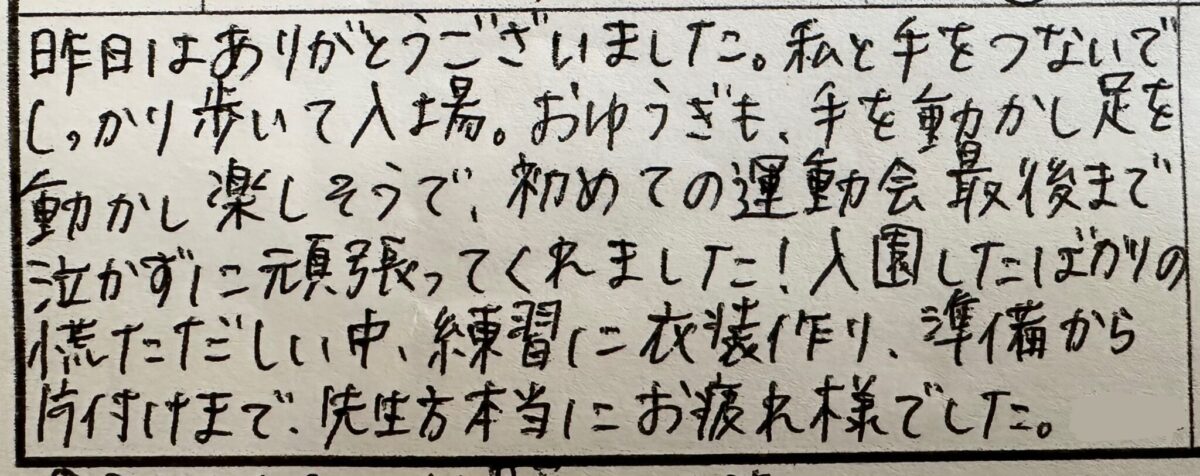 昨日はありがとうございました。私と手をつないで
しっかり歩いて入場。おゆうぎも、手を動かし足を
動かし楽しそうで、初めての運動会最後まで
泣かずに頑張ってくれました！入園したばかりの
慌ただしい中、練習に衣装作り、準備から
片付けまで、先生方本当にお疲れ様でした。